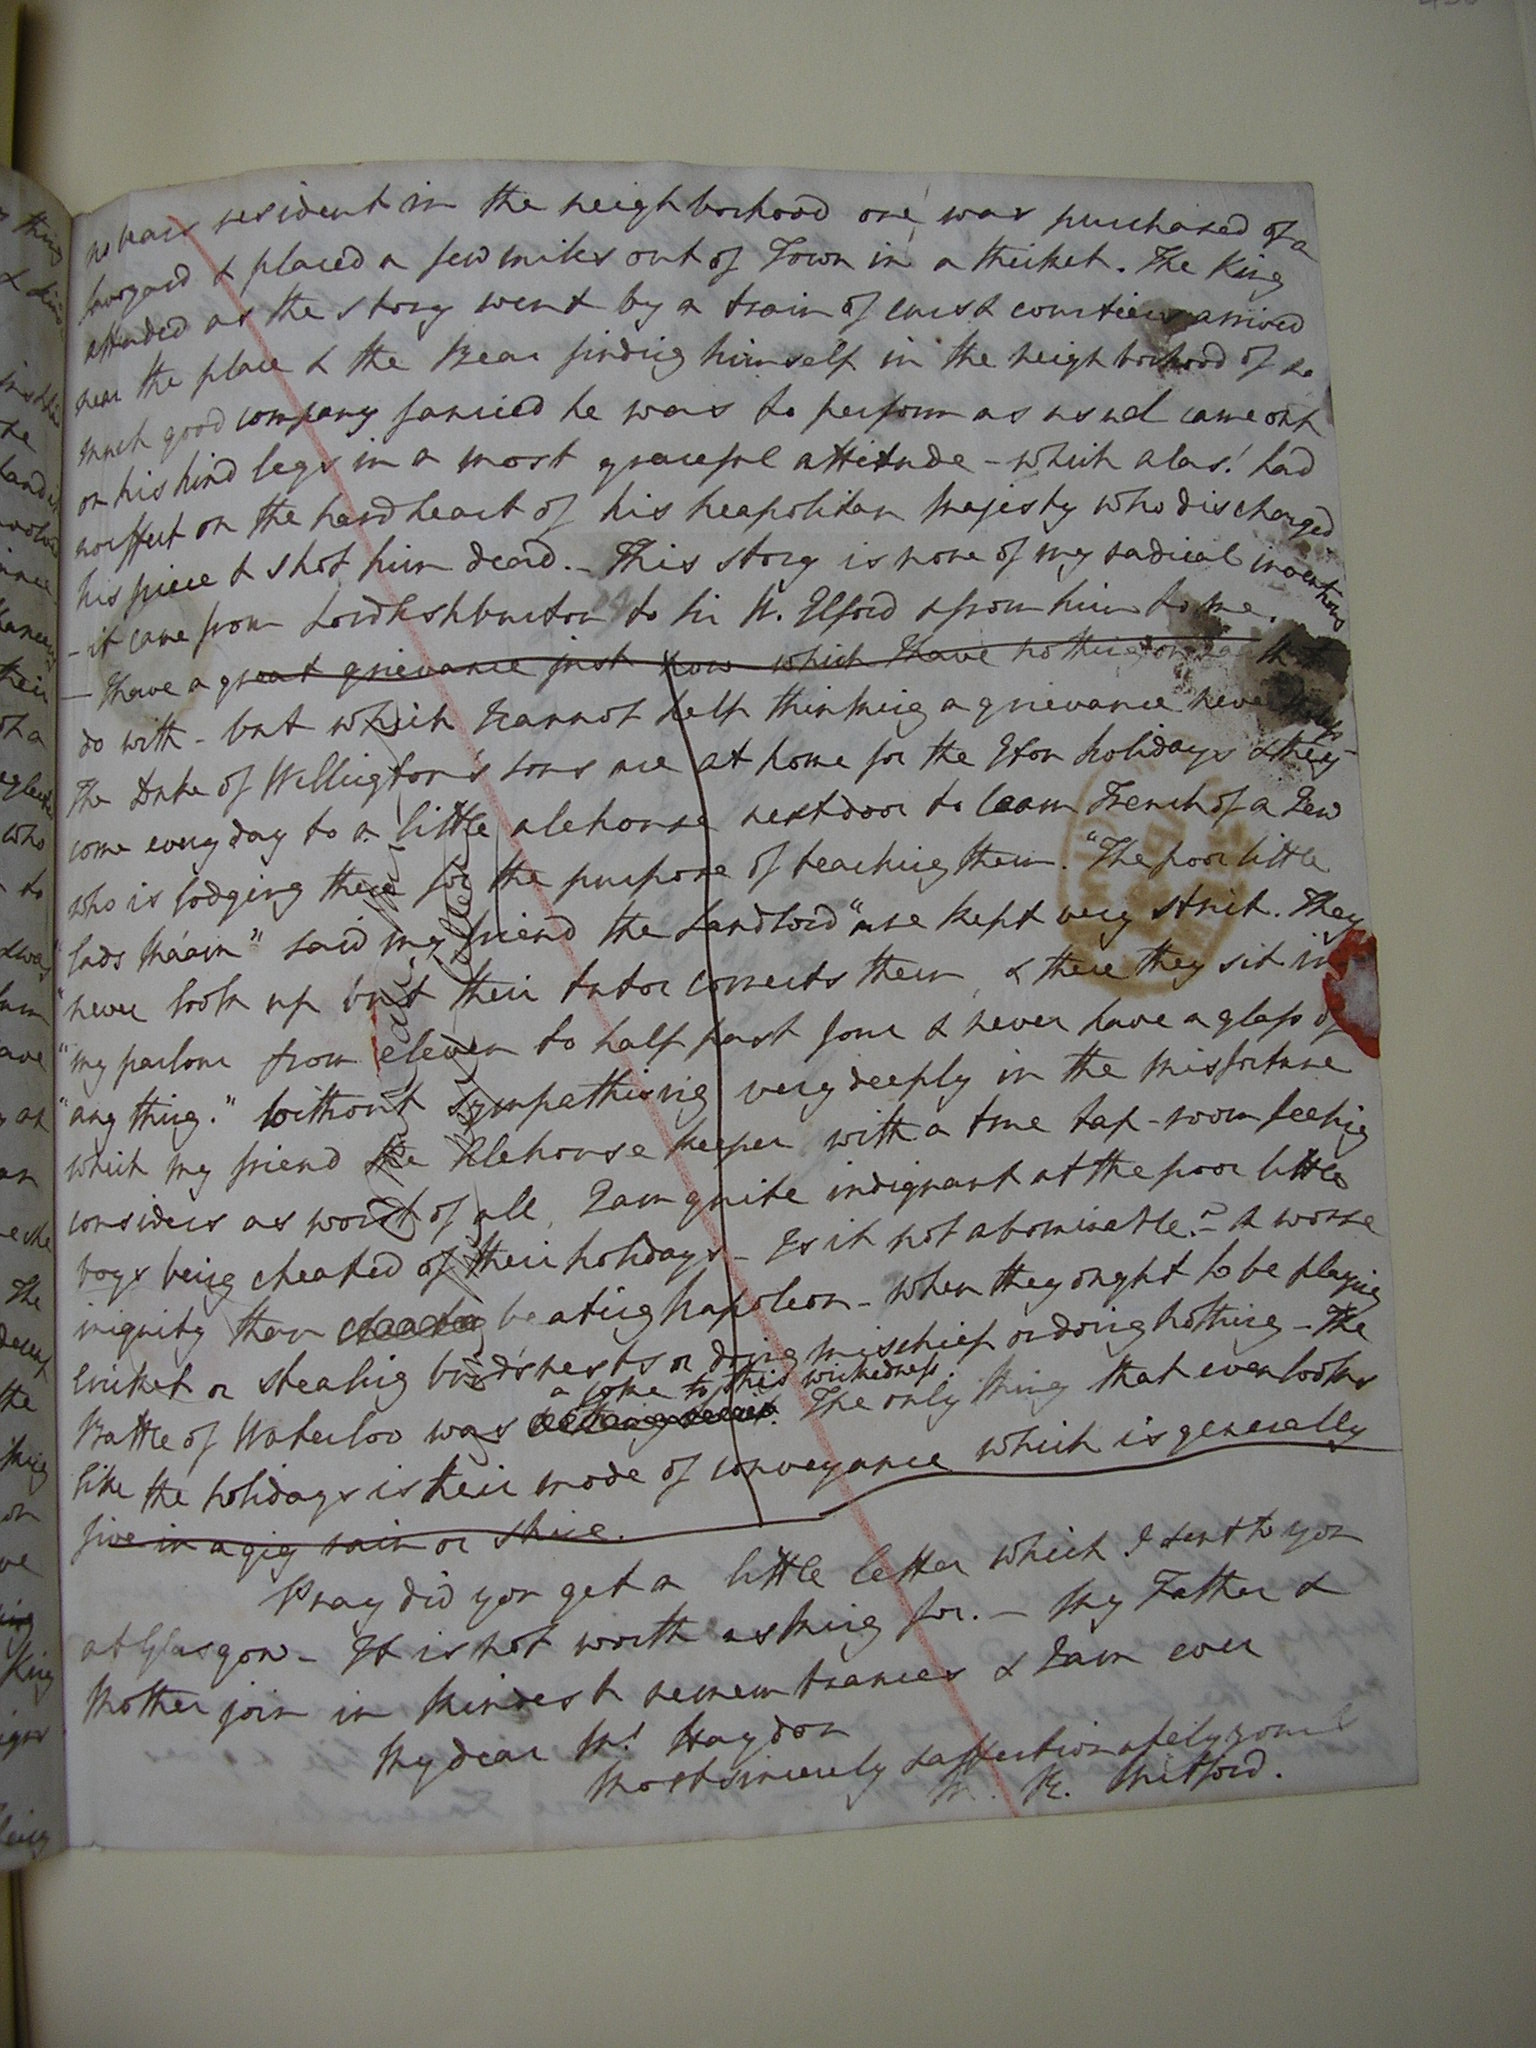 no bears resident in the neighborhood one was purchased of a
savoyard & placed a few miles out of Town in a thicket. The King
attended as the story went by a train of curst courtiers arrived
near the place & the Bear finding himself in the neighborhood of so
much good company fancied he was to perform as usual came out
on his hind legs in a most graceful attitude - which alas! had
no effect on the hard heart of his Neapolitan Majesty who discharged
his piece & shot him dead. - This story is none of my radical inventions
- it came from Lord Ashburton to Sir W. Elford & from him to me.
- I have a great grievance just now which I have nothing on earth to
do with - but which I cannot help thinking a grievance nevertheless -
The Duke of Wellington's sons are at home for the Eton holidays & they
come every day to a little alehouse next door to learn French of a Jew
who is lodging there for the purpose of teaching them. "The poor little
"lads Ma'am" said my friend the Landlord "are kept very strict. They
"never look up but their tutor corrects them, & there they sit in
"my parlour from eleven to half past four & never have a glass of
"any thing." Without sympathising very deeply in the misfortune
which my friend the Alehouse keeper with a true tap-room feeling
considers as worst of all, I am quite indignant at the poor little
boys being cheated of their holidays - Is it not abominable? - A worse
iniquity than beating Napoleon - when they ought to be playing
cricket or stealing birds nests or doing mischief or doing nothing - The
a joke to this wickedness.
Battle of Waterloo was The only thing that even looks
like the holidays is their mode of conveyance which is generally
five in a gig rain or shine.
Pray did you get a little letter which I sent to you
at Glasgow - It is not worth asking for. - My Father &
Mother join in kindest remembrances & I am ever
My dear Mr. Haydon
Most sincerely & affectionately yours
M. R. Mitford.